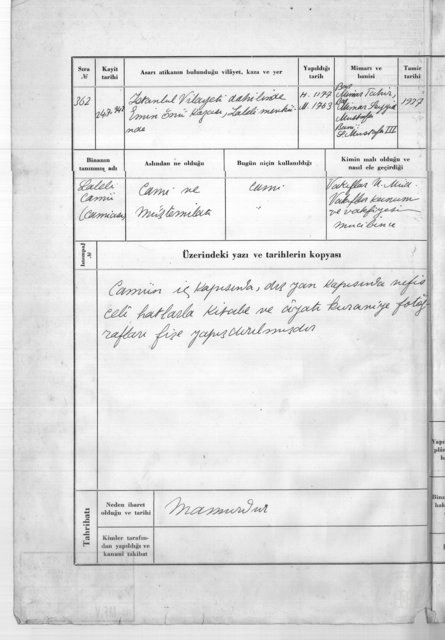 Sıra № Kayit tarihi Asarı atikanın bulunduğu vilâyet, kaza ve yer Yapıldığı tarih Mimarı ve banisi Tamir tarihi
362 İstanbul Vilayeti dahilinde H. 1177 Mimar Tahir, 1937
Emin Önü Kazası, Laleli mevkii M. 1763 Mimar Seyyid
nde Mustafa
Bani
S. Mustafa III
Binanın tanınmış adı Aslından ne olduğu Bugün niçin kullanıldığı Kimin malı olduğu ve nasıl ele geçirdiği
Laleli Cami ve cami Vakıflar U. Müd.
Camii müştemilatı " Vakıflar kanunu
(camisi) ve vakfiyesi
mucibince
№
Üzerindeki yazı ve tarihlerin kopyası
Camiin iç kapısında, dış yan kapısında nefis
celi hatlarla kitabe ve âyatı kuraniye fotoğ
rafları fişe yapıştırılmıştır
Tahribatı
Neden ibaret olduğu ve tarihi Mamurdur
Kimler tarafın-
dan yapıldığı ve
kanunî takibat